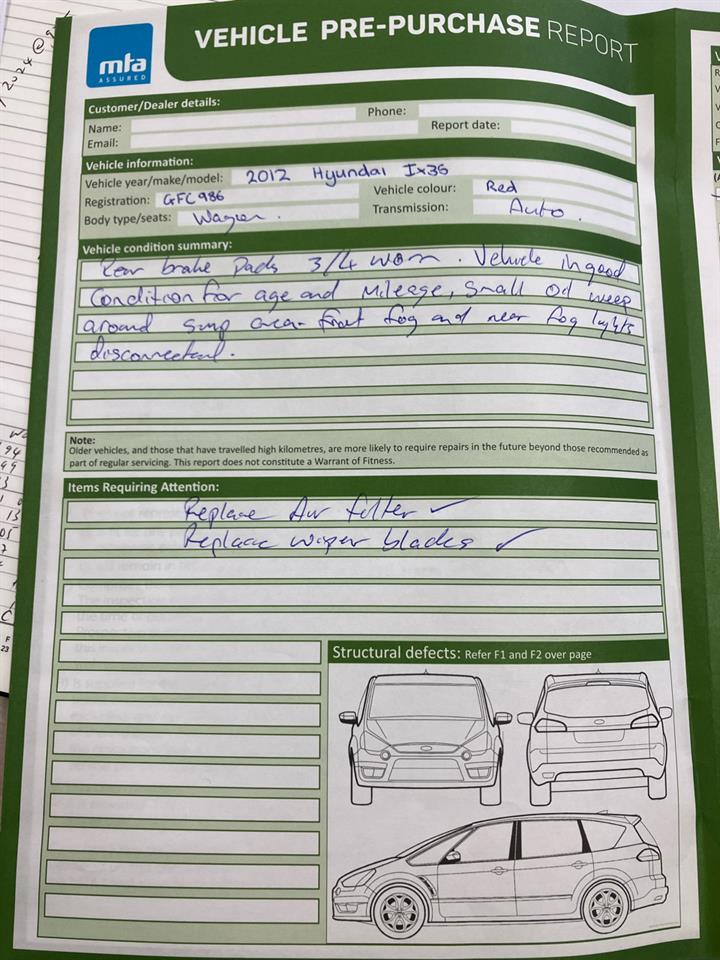 mta
ASSURED
VEHICLE PRE-PURCHASE REPORT
Customer/Dealer details:
Name:
Phone:
Email:
Report date:
Vehicle information:
Vehicle year/make/model: 2012 Hyundai Ix35
Registration: GFC986
Vehicle colour: Red
Body type/seats: Wagon.
Transmission: Auto.
Vehicle condition summary:
Rear brake Pads 3/4 worn. Vehicle in good
Condition for age and Mileage, Small Oil weep
around sump area. Front fog and rear fog lights
disconnected.
Note:
Older vehicles, and those that have travelled high kilometres, are more likely to require repairs in the future beyond those recommended as
part of regular servicing. This report does not constitute a Warrant of Fitness.
Items Requiring Attention:
Replace Air filter ✓
Replace wiper blades ✓
Structural defects: Refer F1 and F2 over page